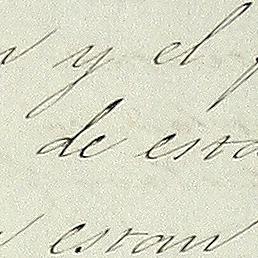 y el
de esta
estan